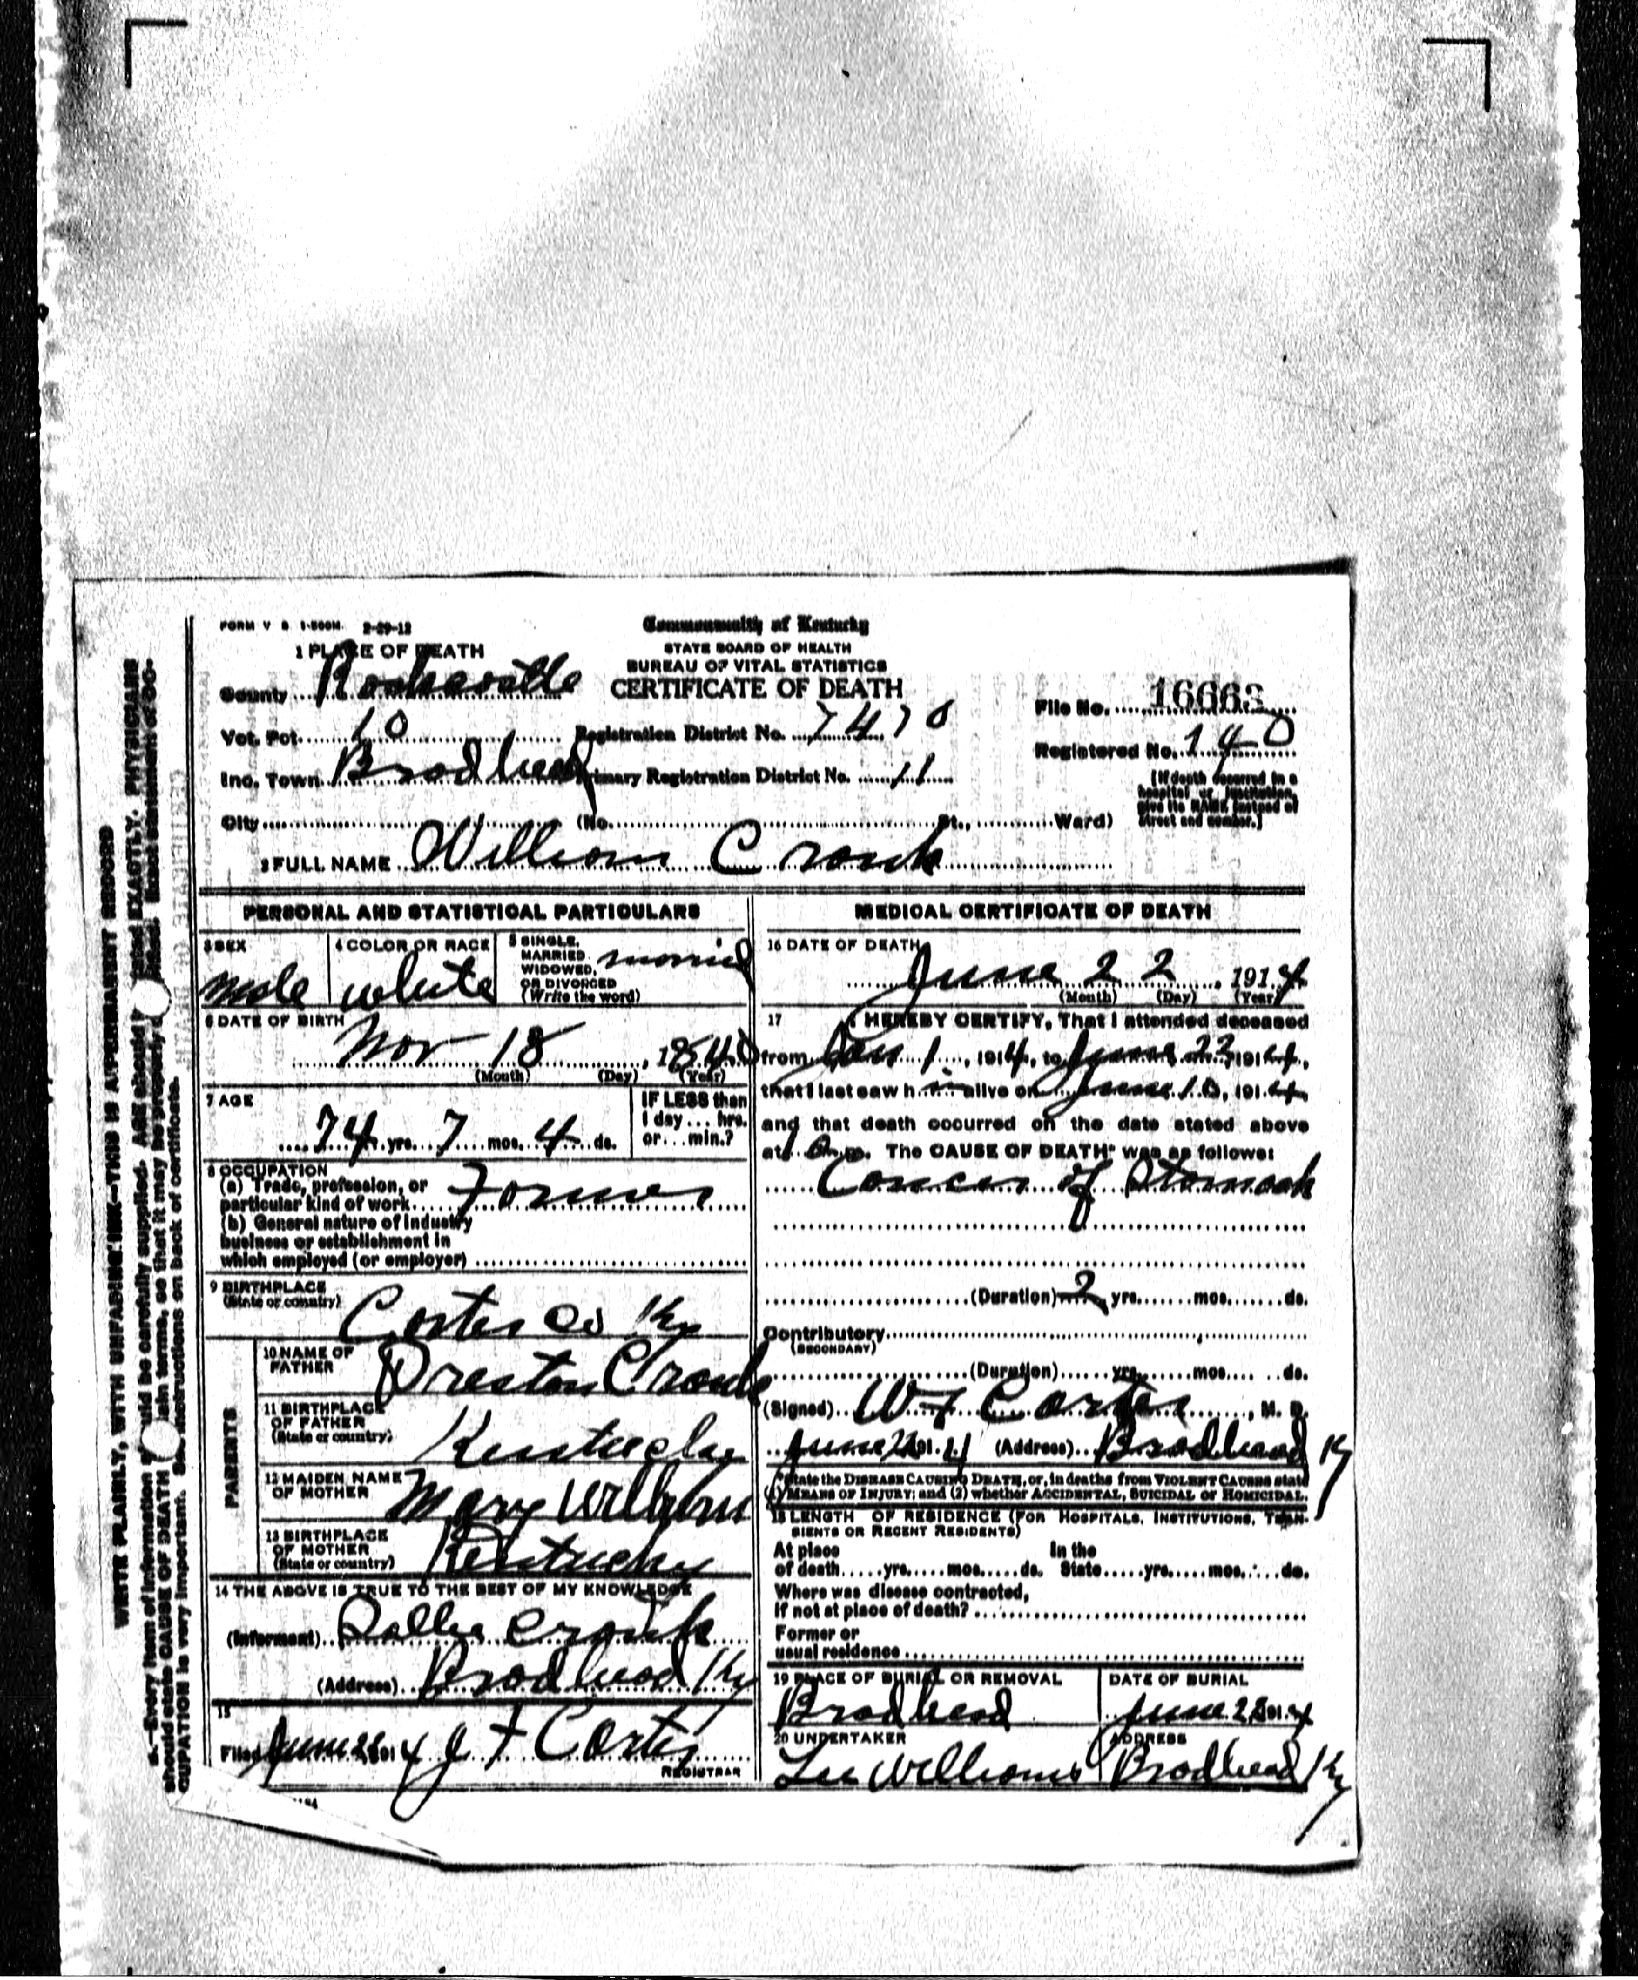 FORM V S 1-500M. 2-29-12
Commonwealth of Kentucky
1 PLACE OF DEATH
STATE BOARD OF HEALTH
BUREAU OF VITAL STATISTICS
County Rockcastle CERTIFICATE OF DEATH
File No. 16663
Vot. Pct. 10 Registration District No. 7470
Registered No. 140
Inc. Town Brodhead Primary Registration District No. 11
[If death occurred in a
hospital or institution,
give its NAME instead of
street and number.]
City (No. St., Ward)
2 FULL NAME William Cronk
PERSONAL AND STATISTICAL PARTICULARS
3 SEX
male
4 COLOR OR RACE
white
5 SINGLE,
MARRIED
WIDOWED,
OR DIVORCED
(Write the word)
married
6 DATE OF BIRTH
Nov 18, 1840
(Month) (Day) (Year)
7 AGE
74 yrs. 7 mos. 4 ds.
IF LESS than
1 day ... hrs.
or ... min.?
8 OCCUPATION
(a) Trade, profession, or
particular kind of work Farmer
(b) General nature of industry
business or establishment in
which employed (or employer)
9 BIRTHPLACE
(State or country)
Carter Co Ky
PARENTS
10 NAME OF
FATHER
Preston Cronk
11 BIRTHPLACE
OF FATHER
(State or country)
Kentucky
12 MAIDEN NAME
OF MOTHER
Mary
13 BIRTHPLACE
OF MOTHER
(State or country)
Kentucky
14 THE ABOVE IS TRUE TO THE BEST OF MY KNOWLEDGE
(Informant) Sallie Cronk
(Address) Brodhead Ky
15
Filed June 1914 J F Carter
REGISTRAR
MEDICAL CERTIFICATE OF DEATH
16 DATE OF DEATH
June 22, 1914
(Month) (Day) (Year)
17 I HEREBY CERTIFY, That I attended deceased
from Jan 1, 1914, to June 22 1914,
that I last saw him alive on June 10, 1914,
and that death occurred on the date stated above
at m. The CAUSE OF DEATH* was as follows:
Cancer of Stomach
(Duration) 2 yrs. mos. ds.
Contributory
(SECONDARY)
(Duration) yrs. mos. ds.
(Signed) W F Carter, M. D.
June 191 (Address) Brodhead Ky
*State the DISEASE CAUSING DEATH, or, in deaths from VIOLENT CAUSES state
(1) MEANS OF INJURY; and (2) whether ACCIDENTAL, SUICIDAL or HOMICIDAL.
18 LENGTH OF RESIDENCE (FOR HOSPITALS, INSTITUTIONS, TRAN-
SIENTS OR RECENT RESIDENTS)
At place In the
of death yrs. mos. ds. State yrs. mos. ds.
Where was disease contracted,
If not at place of death?
Former or
usual residence
19 PLACE OF BURIAL OR REMOVAL
Brodhead
DATE OF BURIAL
June 1914
20 UNDERTAKER
Lee Williams
ADDRESS
Brodhead Ky
WRITE PLAINLY, WITH UNFADING INK—THIS IS A PERMANENT RECORD